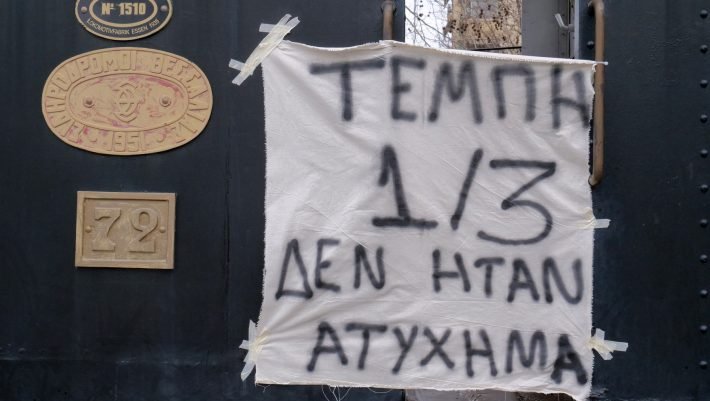 Nº 1510
LOKOMOTIVFABRIK ESSEN
ΣΙΔΗΡΟΔΡΟΜΟΙ ΘΕΣΣΑΛΙΑΣ
1951
72
ΤΕΜΠΗ
1/3
ΔΕΝ ΗΤΑΝ
ΑΤΥΧΗΜΑ